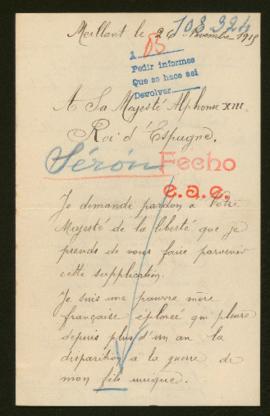 Meillant le 26 Novembre 1915
108.924
A
Pedir informes
Que se hace así
Devolver
A Sa Majesté Alphonse XIII.
Roi d'Espagne.
Sérón
Fecho
e.a.c.
Je demande pardon à Votre
Majesté de la liberté que je
prends de vous faire parvenir
cette supplication.
Je suis une pauvre mère
française éplorée qui pleure
depuis plus d'un an la
disparition à la guerre de
mon fils unique.